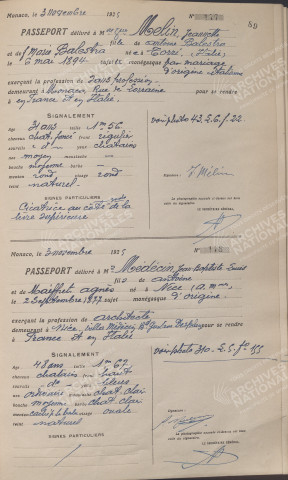 Monaco, le 3 novembre 1925 Nº 141
59
PASSEPORT délivré à M Melin Jeannette
fille de Antoine Balestra
et de Marie Balestra né à Torri, (Italie)
le 6 mai 1894 sujet monégasque par mariage
d'origine italienne
exerçant la profession de sans profession
demeurant à Monaco, Rue de Lorraine pour se rendre
en France et en Italie
SIGNALEMENT
Age 31 ans Taille 1m 56
cheveux chat. foncé front régulier
sourcils d° yeux chatains
nez moyen
bouche moyenne
menton rond visage rond
teint naturel
SIGNES PARTICULIERS
Cicatrice au côté de la
lèvre supérieure
voir photo 43. 2 G. f: 22
Signature :
J Melin
LE SECRÉTAIRE GÉNÉRAL,
Monaco, le 3 novembre 1925 Nº 142
PASSEPORT délivré à M Médecin, Jean-Baptiste Louis
fils de Antoine
et de Maiffret Agnès né à Nice (a. m.)
le 2 Septembre 1877 sujet monégasque d'origine
exerçant la profession de architecte
demeurant à Nice, Villa Médecin, Bd pour se rendre
France et en Italie
SIGNALEMENT
Age 48 ans Taille 1m 67
cheveux chatains front haut
sourcils d° yeux bleus
nez moustache chat. clair
bouche moyenne barbe chat. clair
menton visage ovale
teint naturel
SIGNES PARTICULIERS
voir photo 310. 2 G. f: 155
Signature :
LE SECRÉTAIRE GÉNÉRAL,
ARCHIVES
NATIONALES